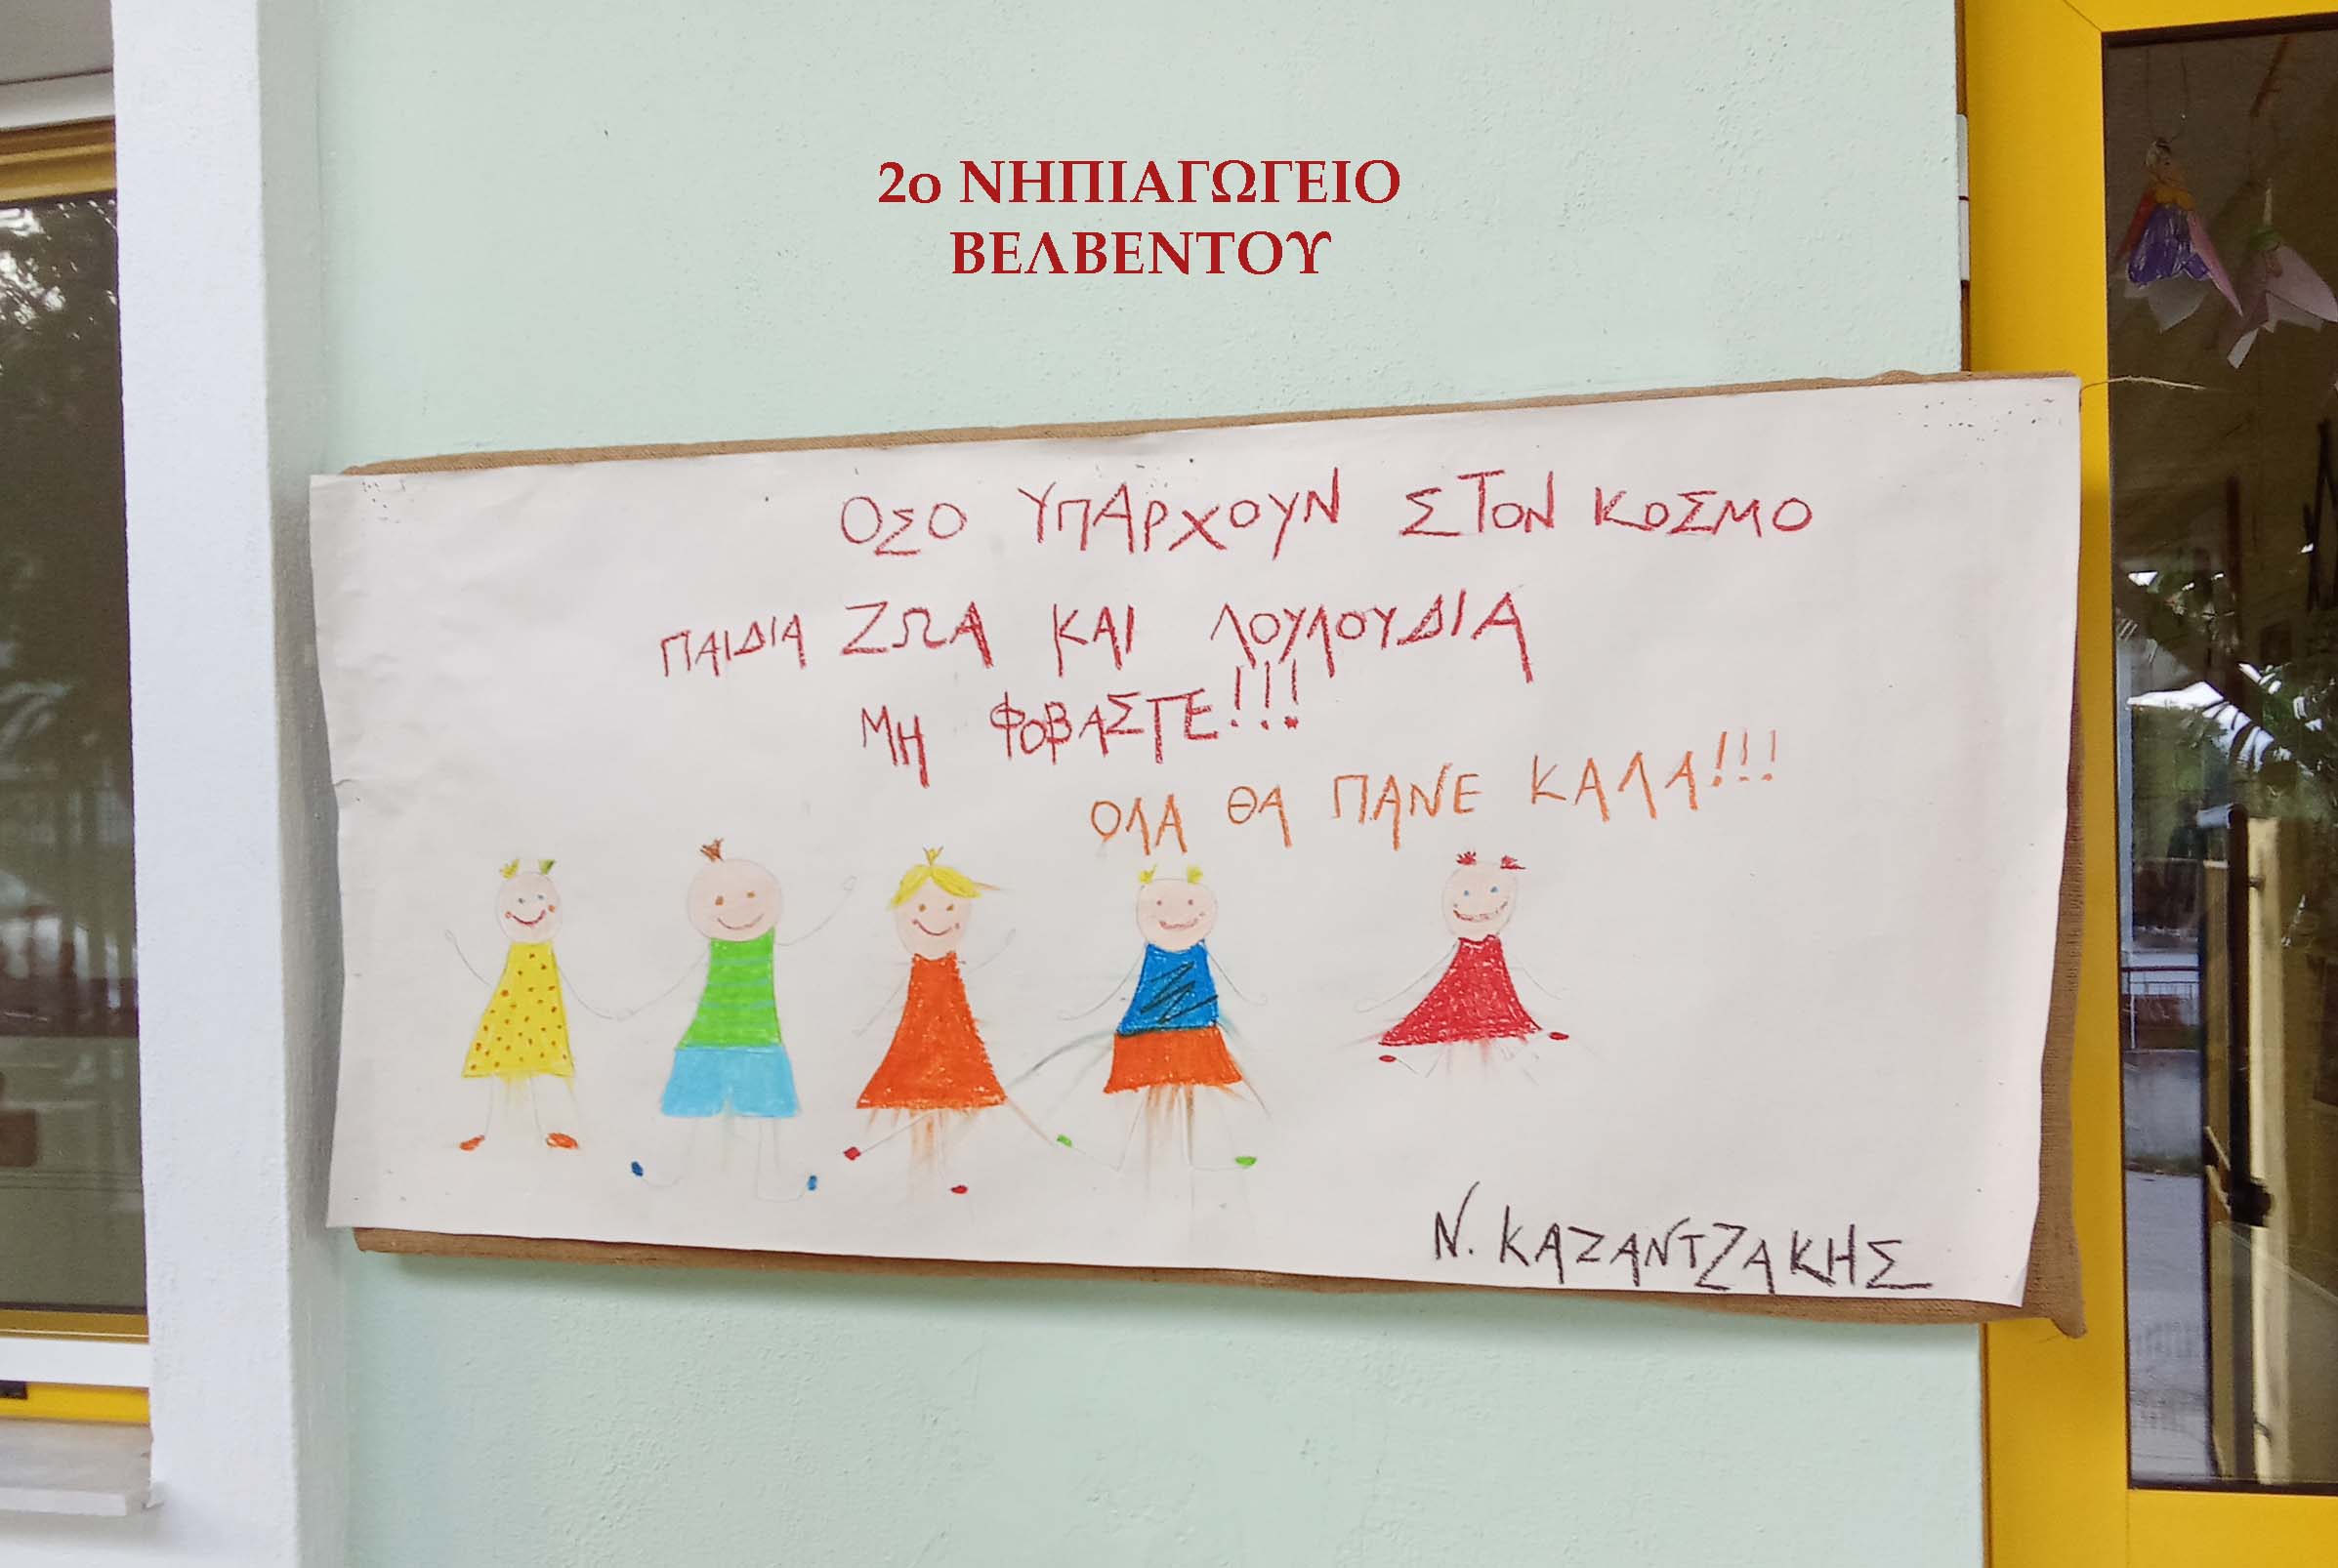 2ο ΝΗΠΙΑΓΩΓΕΙΟ
ΒΕΛΒΕΝΤΟΥ
ΟΣΟ ΥΠΑΡΧΟΥΝ ΣΤΟΝ ΚΟΣΜΟ
ΠΑΙΔΙΑ ΖΩΑ ΚΑΙ ΛΟΥΛΟΥΔΙΑ
ΜΗ ΦΟΒΑΣΤΕ!!!
ΟΛΑ ΘΑ ΠΑΝΕ ΚΑΛΑ!!!
Ν. ΚΑΖΑΝΤΖΑΚΗΣ